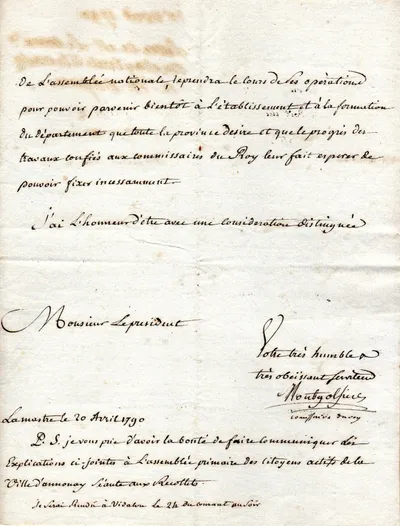 De L'assemblée nationale, reprendra le cours de ses opérations
pour pouvoir parvenir bientôt à L'établissement et à la formation
du département que toute la province desire et que le progrès des
travaux confiés aux commissaires du Roy leur fait esperer de
pouvoir fixer incessamment.
J'ai L'honneur d'être avec une consideration distinguée
Monsieur Le president
Votre très humble &
très obeissant serviteur
Montgolfier
commissaire du roy
Lamastre le 20 Avril 1790
P. S. je vous prie d'avoir la bonté de faire communiquer les
Explications ci-jointes à L'assemblée primaire des citoyens actifs de la
Ville d'annonay séante aux Recollets
Je serai Rendu à Vidalon le 24 du courant au soir